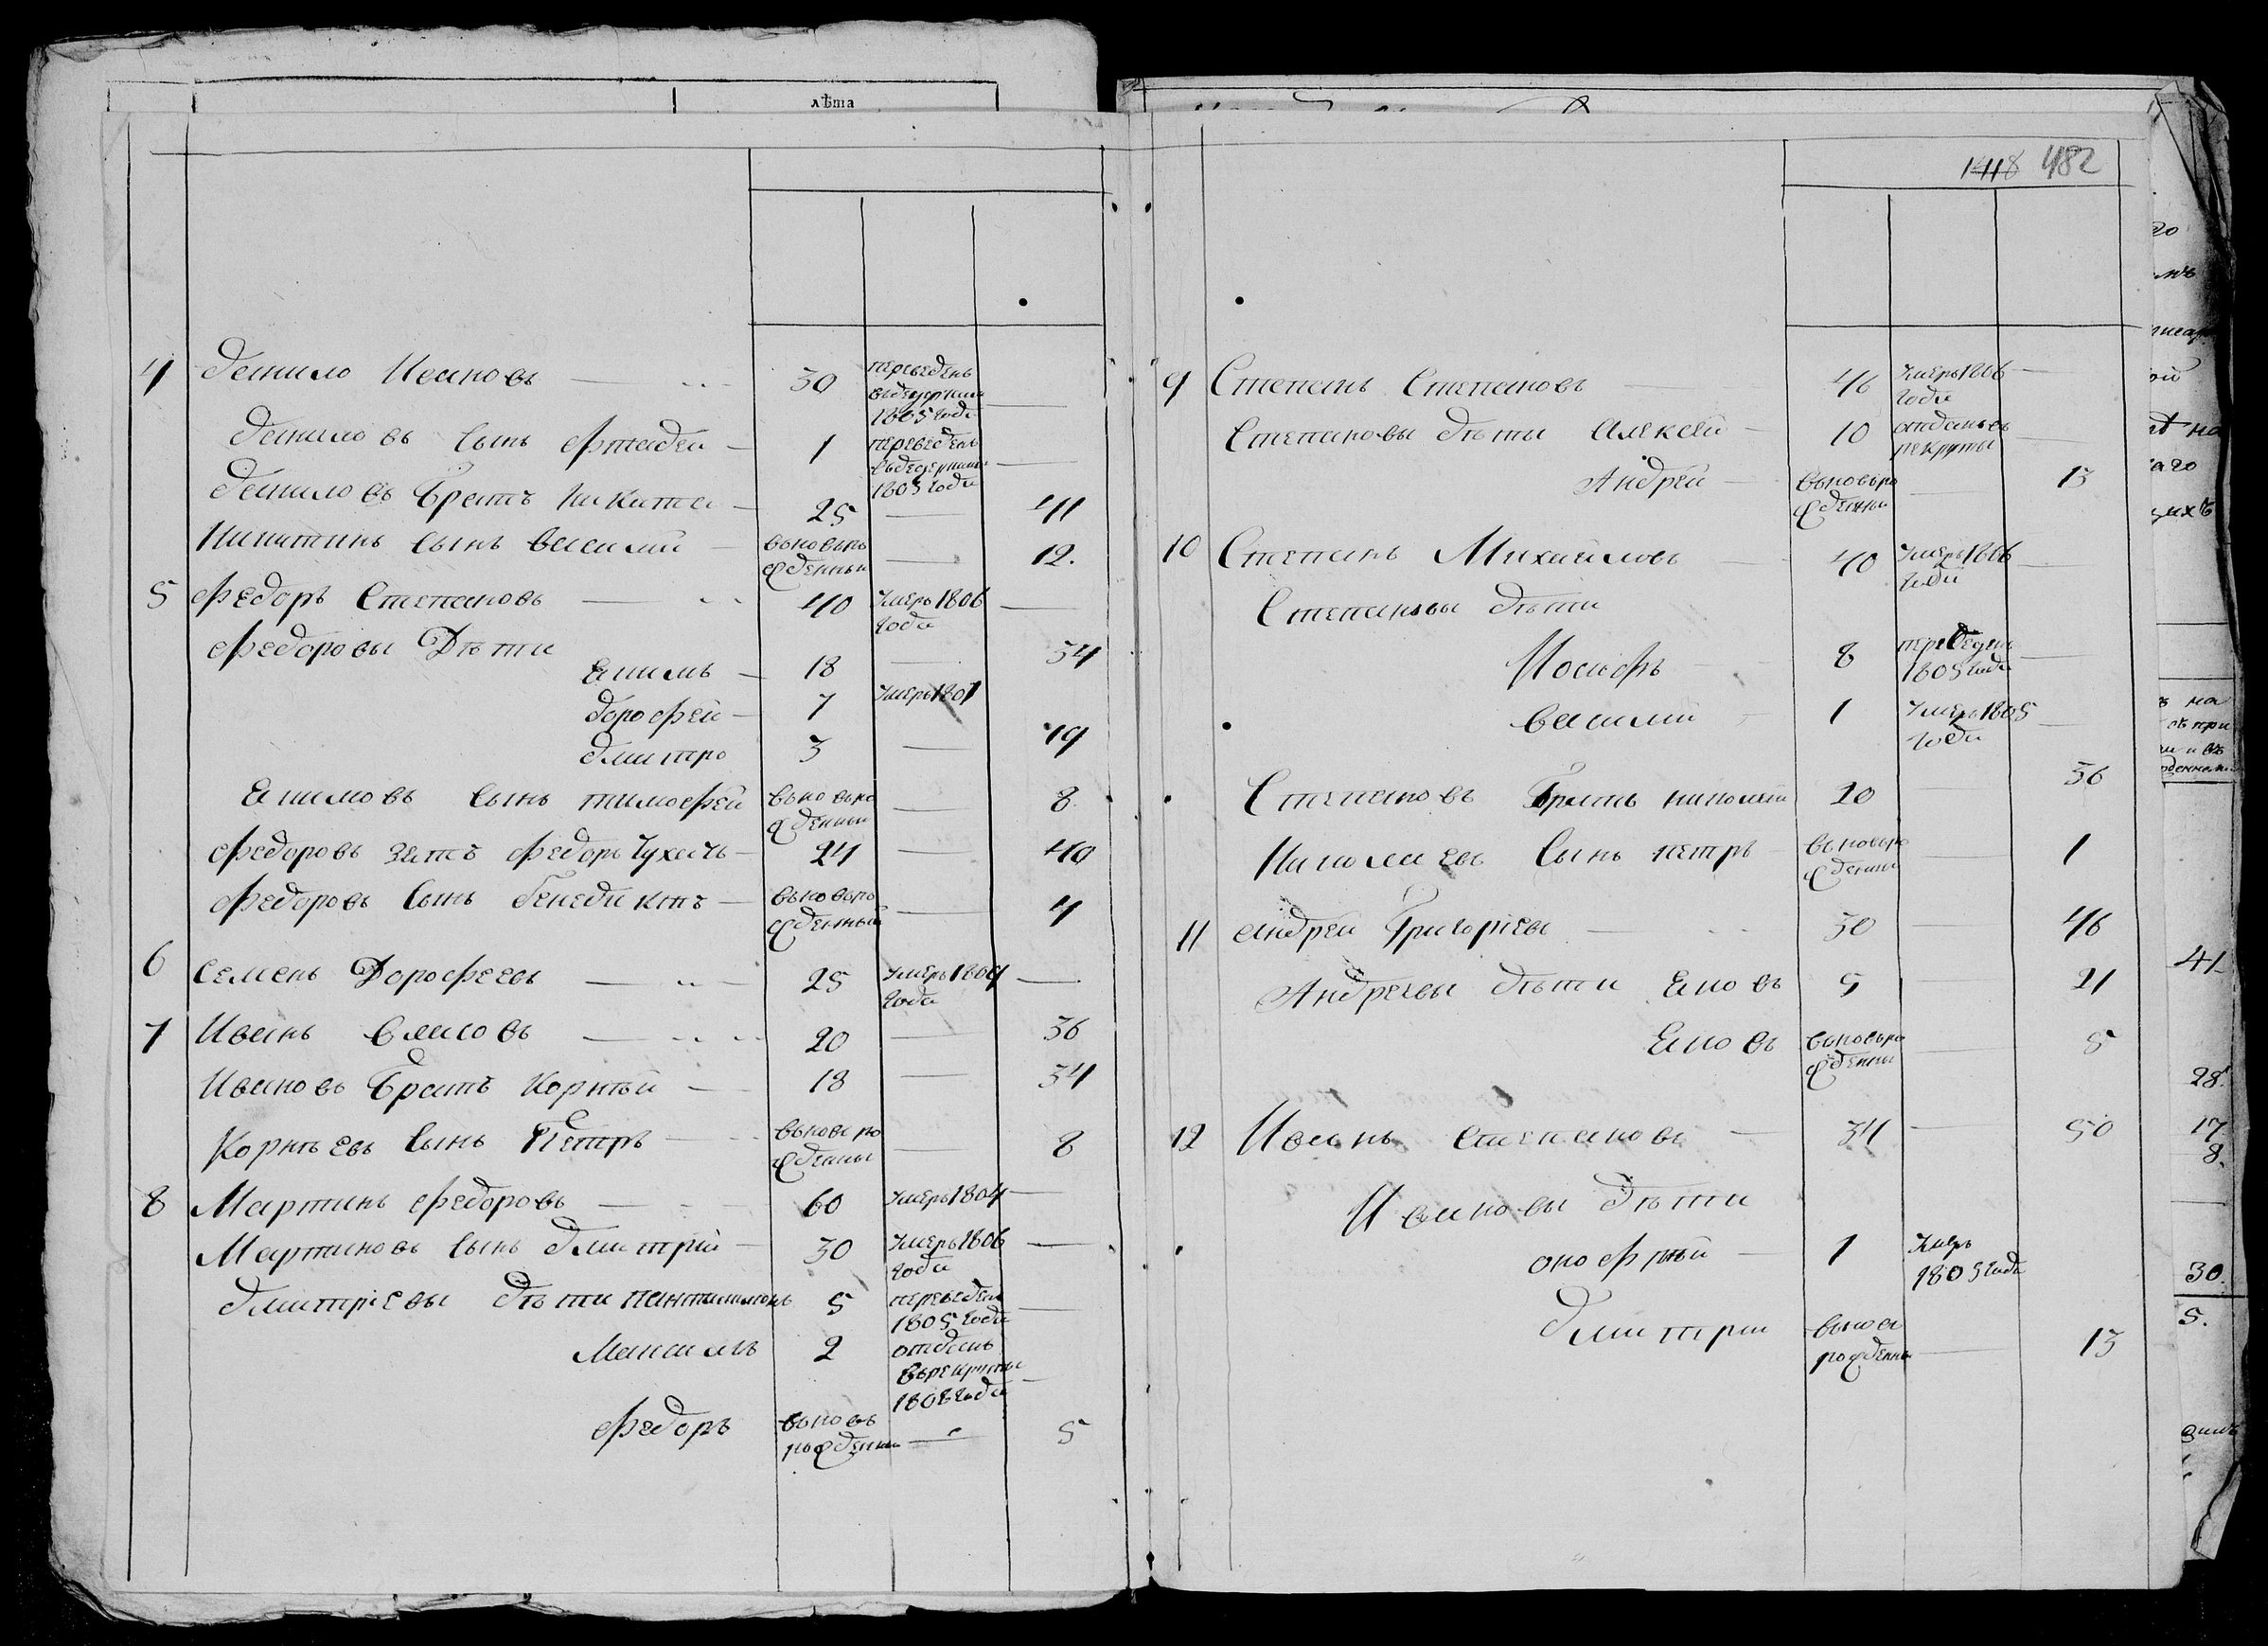 лѣта
4 Данило Ивановъ 30 переведенъ
1805 года
Даниловъ сынъ Фтадей 1 переведенъ
1805 года
Даниловъ братъ Никита 25 — 41
Никитинъ сынъ Василий вьновьро — 12.
жденный
5 Федоръ Степановъ 40 Умеръ 1806 —
года
Федоровы Дѣти
Акимъ 18 — 34
Дорофей 7 Умеръ 1807
Дмитро 3 — 19
Акимовъ сынъ Тимофей вьновьро — 8
жденный
Федоровъ зять Федоръ Чухачь 24 — 40
Федоровъ сынъ Бенедиктъ вьновьро — 4
жденный
6 Семенъ Дорофеевъ 25 Умеръ 1809 —
года
7 Иванъ Власовъ 20 — 36
Ивановъ братъ Корнѣй 18 — 34
Корнѣевъ сынъ Петръ вьновь ро — 8
жденны
8 Мартинъ Федоровъ 60 Умеръ 1804 —
Мартиновъ сынъ Дмитрій 30 Умеръ 1806 —
года
Дмитріевы дѣти Пантилимонъ 5 переведен —
1805 года
Максимъ 2 отданъ
въ рекруты —
1808 года
Федоръ вьновь
рожденны — 5
1418 482
9 Степанъ Степановъ 46 Умеръ 1806 —
года
Степановы дѣти Алексей 10 отданъ въ
рекруты —
Андрей вьновьро — 13
жденны
10 Степанъ Михайловъ 40 Умеръ 1806 —
года
Степановы дѣти
Иосифъ 8 переведенъ
1805 года —
Василий 1 Умеръ 1805 —
года
Степановъ братъ Николай 20 — 36
Николаевъ сынъ Петръ вьновьро — 1
жденны
11 Андрей Григоріевъ 30 — 46
Андреевы дѣти Яковъ 5 — 21
Яковъ вьновьро — 8
жденны
12 Иванъ Степановъ 34 — 50
Ивановы дѣти
Онофрѣй 1 Умеръ
1805 года
Дмитрий вьновь
рожденны — 13
41
28.
17
8.
30.
5.